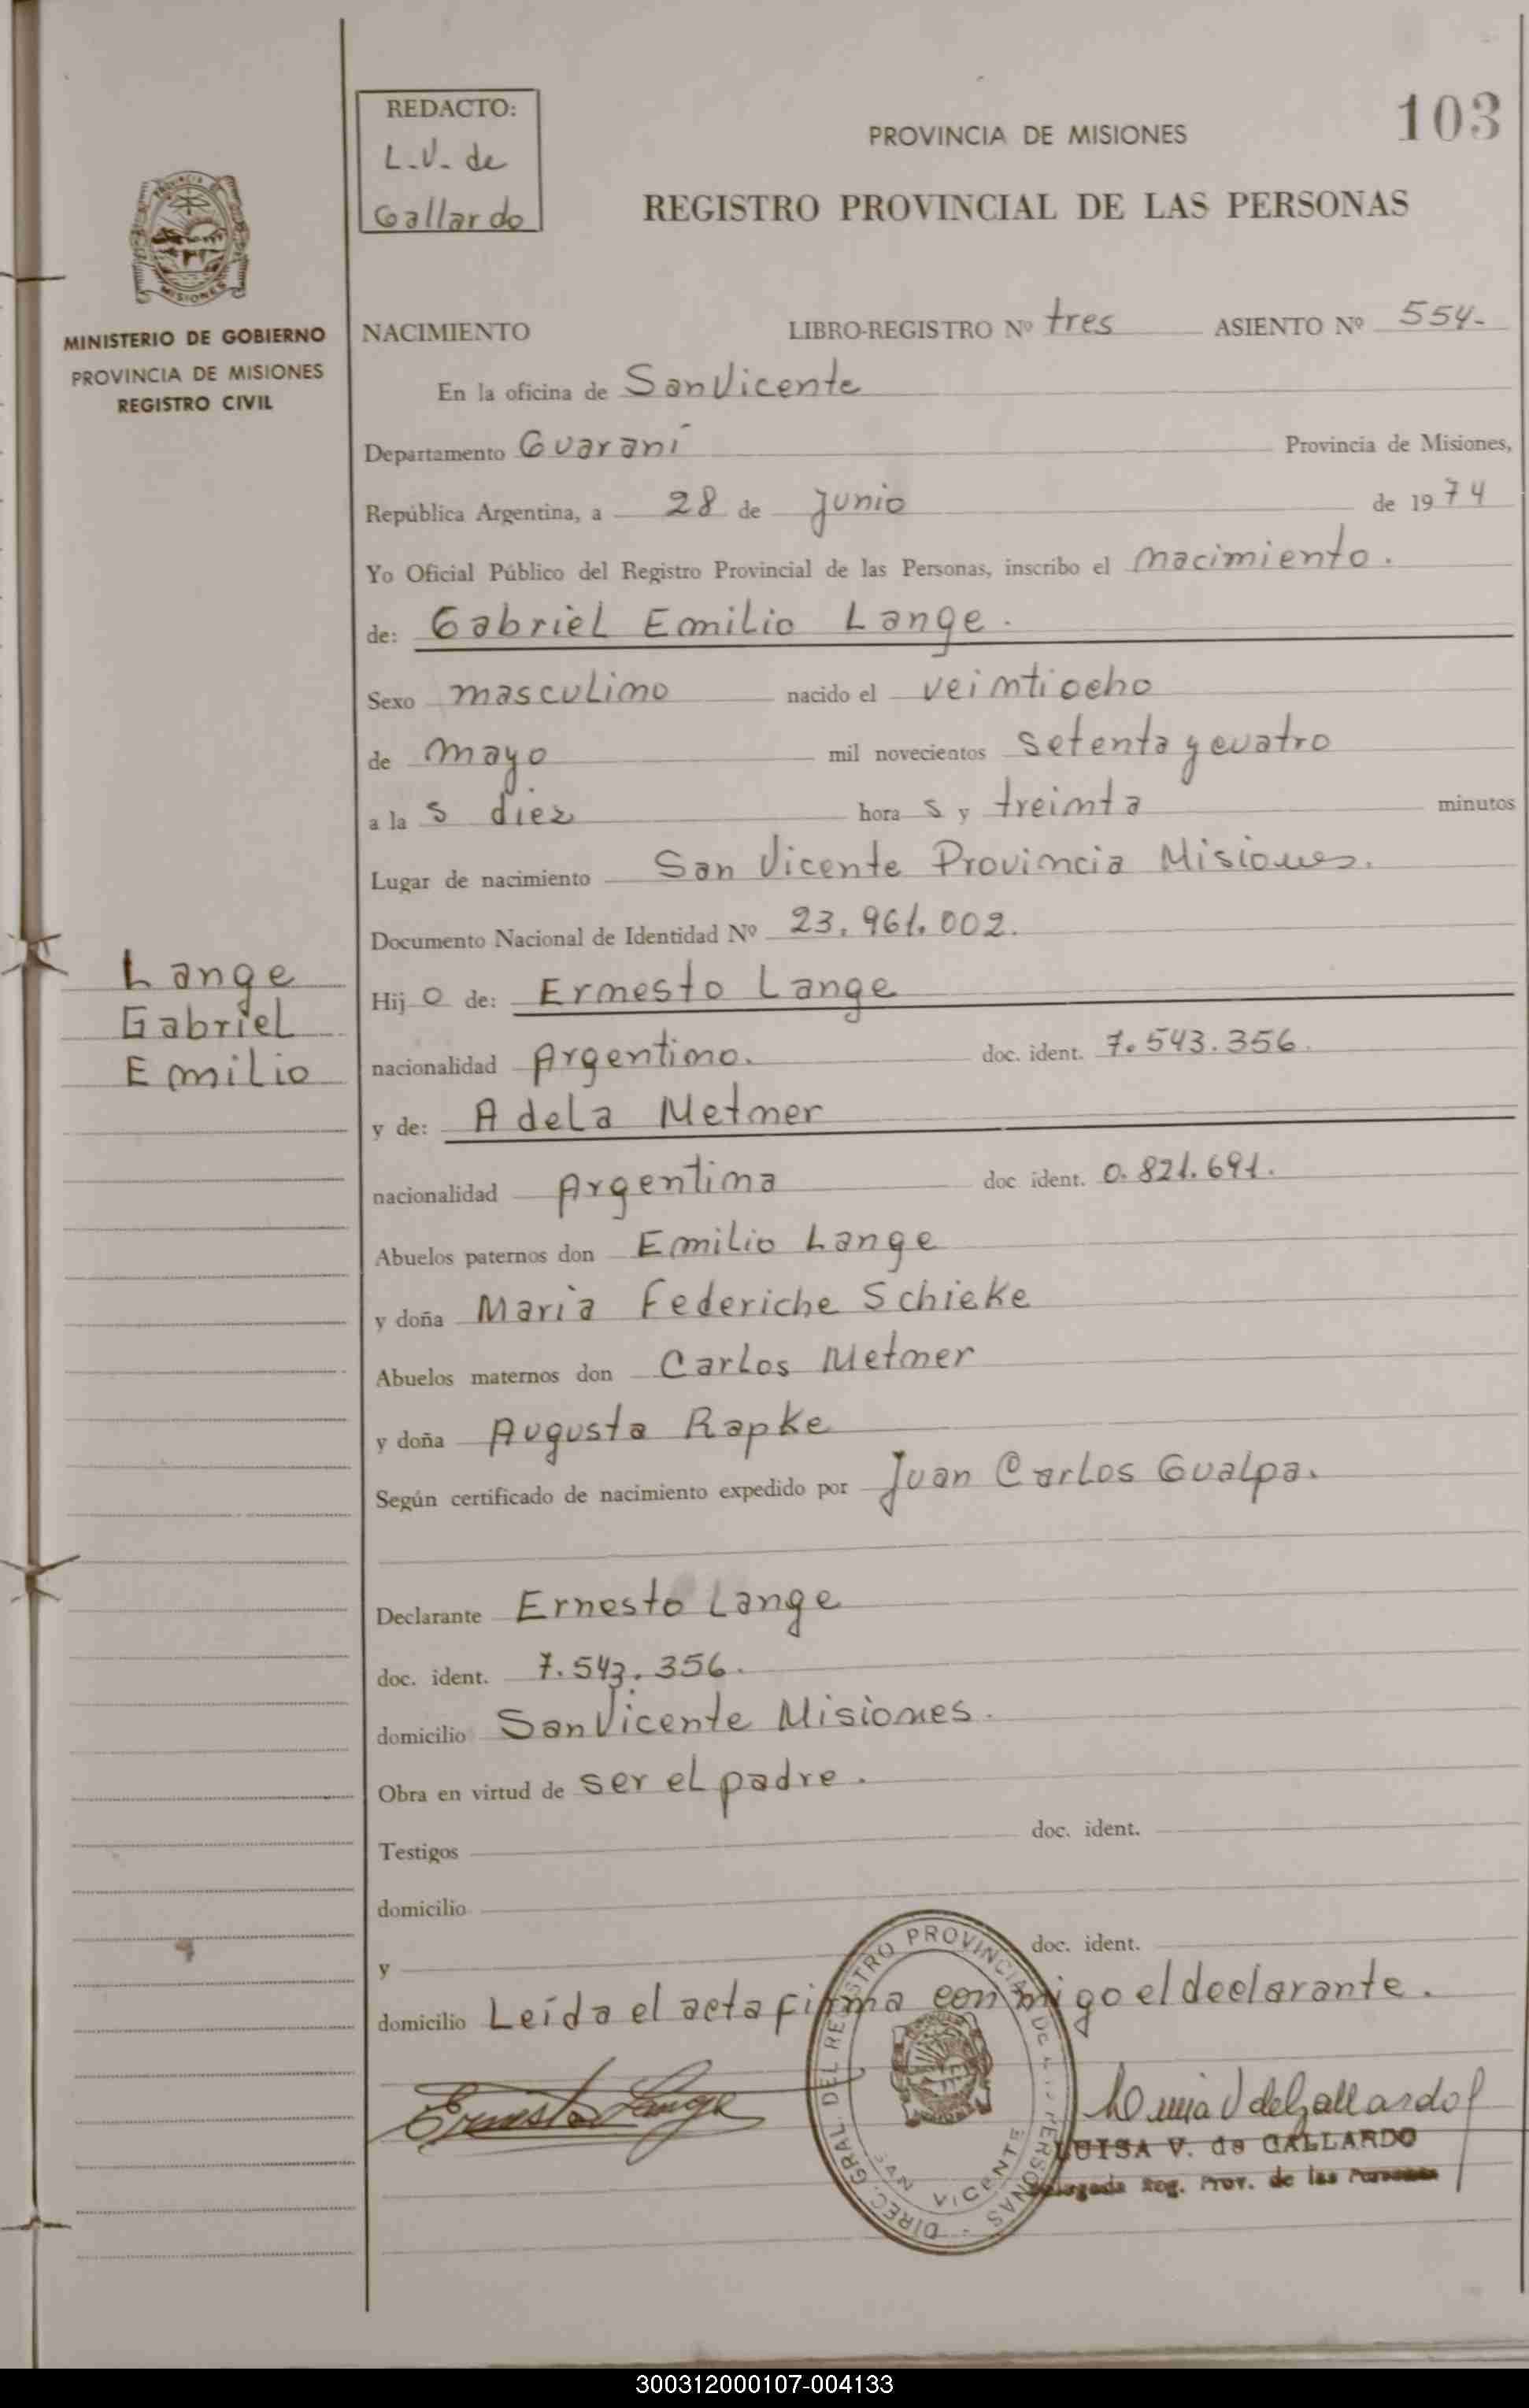 103
REDACTO:
L.V. de
Gallardo
PROVINCIA DE MISIONES
REGISTRO PROVINCIAL DE LAS PERSONAS
PROVINCIA
MISIONES
MINISTERIO DE GOBIERNO
PROVINCIA DE MISIONES
REGISTRO CIVIL
NACIMIENTO LIBRO-REGISTRO Nº tres ASIENTO Nº 554-
En la oficina de San Vicente
Departamento Guaraní Provincia de Misiones,
República Argentina, a 28 de Junio de 1974
Yo Oficial Público del Registro Provincial de las Personas, inscribo el nacimiento.
de: Gabriel Emilio Lange.
Sexo masculino nacido el veintiocho
de mayo mil novecientos setenta y cuatro
a la s diez hora s y treinta minutos
Lugar de nacimiento San Vicente Provincia Misiones.
Documento Nacional de Identidad Nº 23.961.002.
Lange
Gabriel
Emilio
Hij o de: Ernesto Lange
nacionalidad Argentino. doc. ident. 7.543.356.
y de: Adela Metner
nacionalidad Argentina doc ident. 0.821.691.
Abuelos paternos don Emilio Lange
y doña Maria Federiche Schieke
Abuelos maternos don Carlos Metner
y doña Augusta Rapke
Según certificado de nacimiento expedido por Juan Carlos Gualpa.
Declarante Ernesto Lange
doc. ident. 7.543.356.
domicilio San Vicente Misiones.
Obra en virtud de ser el padre.
Testigos doc. ident.
domicilio
y doc. ident.
domicilio Leída el acta firma conmigo el declarante.
DIREC. GRAL. DEL REGISTRO PROVINCIAL DE LAS PERSONAS
SAN VICENTE
Ernesto Lange
Luisa V de Gallardo
LUISA V. de GALLARDO
Delegada Reg. Prov. de las Personas
300312000107-004133